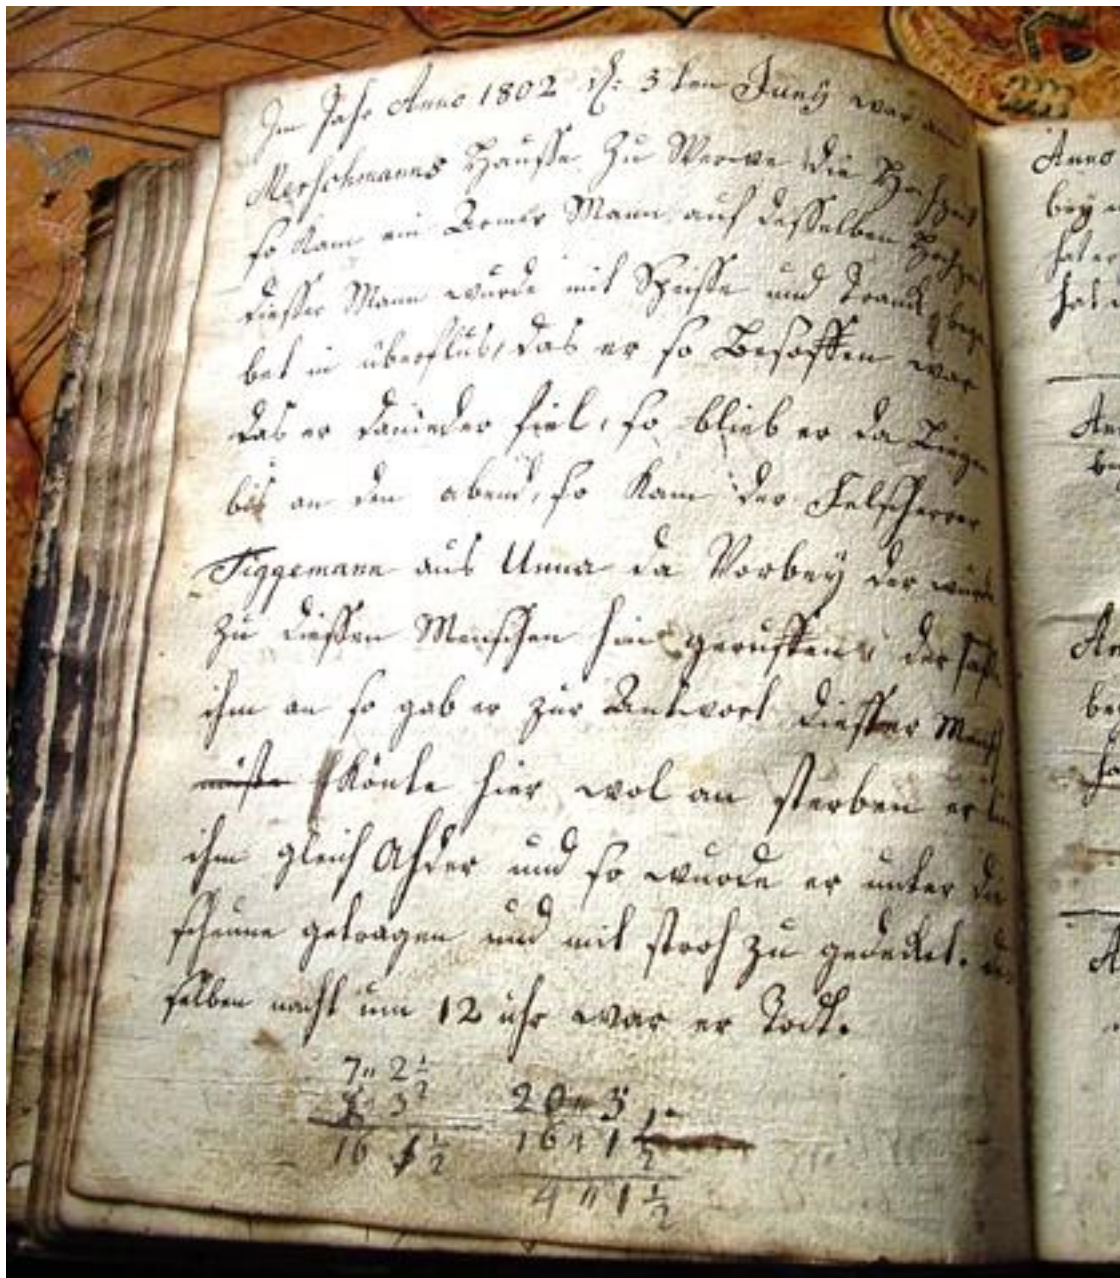 Im Jahr Anno 1802 d: 3ten Juny war auf
Merschmanns Hausse zu Werwe die Hochzeit
so kam ein Armer Mann auf desselben Hochzeit
diesser Mann wurde mit Speisse und Tranck
bet in überfluß, das er so Besoffen war
das er danieder fiel, so blieb er da Liegen
bis an den abend, so kam der Felscherrer
Tiggemann aus Unna da Vorbey der wurde
zu diessen Menschen hin geruffen, der sahe
ihm an so gab er zur Antwort diesser Mensch
müste könte hier wol an sterben er
ihm gleich Ahder und so wurde er unter die
scheune getragen und mit stroh zu gedecket.
selben nacht um 12 uhr war er Todt.
7" 2 1/2
3
16 1 1/2
20 " 3
16 " 1 1/2
4 " 1 1/2
Anno
bey
hat er
hat
An
An
be